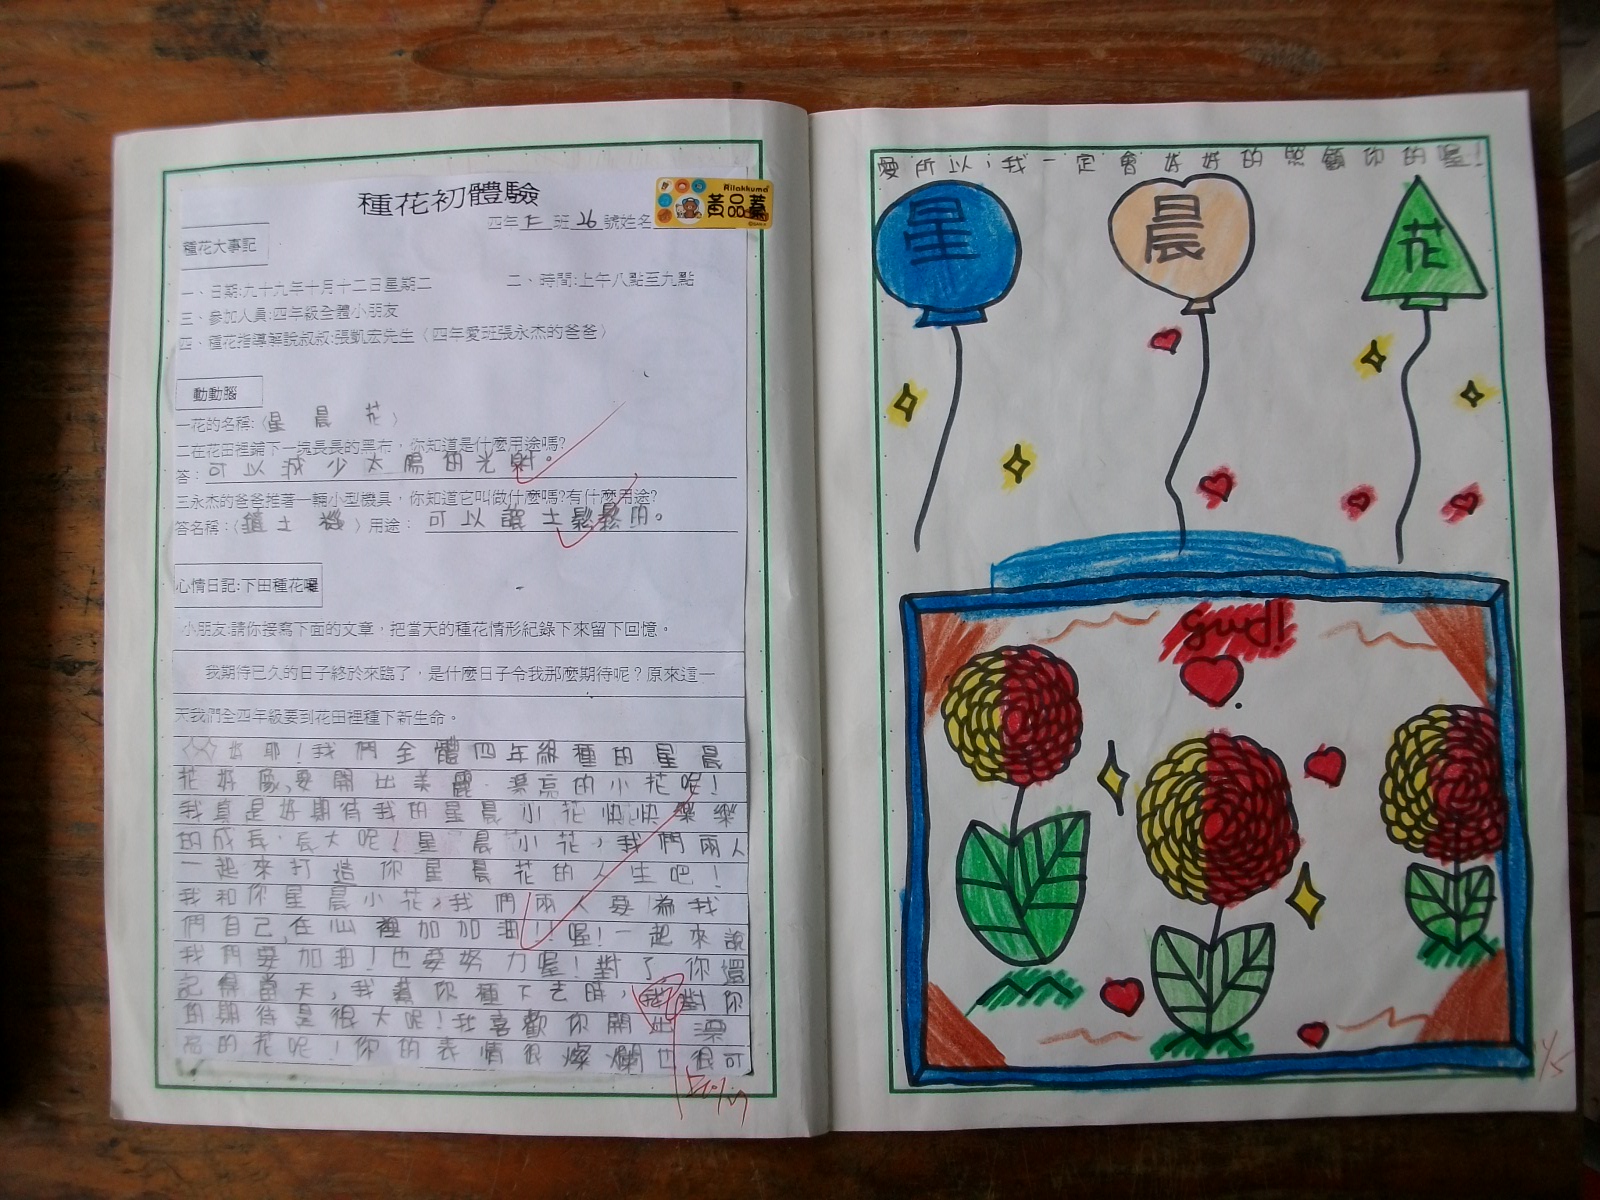 種花初體驗
四年仁班26號姓名
Rilakkuma
黃品蓁
種花大事記
一、日期:九十九年十月十二日星期二 二、時間:上午八點至九點
三、參加人員:四年級全體小朋友
四、種花指導解說叔叔:張凱宏先生〈四年愛班張永杰的爸爸〉
動動腦
一花的名稱:〈星晨花〉
二在花田裡鋪下一塊長長的黑布，你知道是什麼用途嗎?
答：可以減少太陽的光射。
三永杰的爸爸推著一輛小型機具，你知道它叫做什麼嗎?有什麼用途?
答名稱：〈土機〉用途：可以讓土鬆鬆用。
心情日記:下田種花囉
小朋友:請你接寫下面的文章，把當天的種花情形紀錄下來留下回憶。
我期待已久的日子終於來臨了，是什麼日子令我那麼期待呢？原來這一
天我們全四年級要到花田裡種下新生命。
好耶！我們全體四年級種的星晨
花好像要開出美麗、漂亮的小花呢！
我真是好期待我的星晨小花快快樂樂
的成長、長大呢！星晨小花，我們兩人
一起來打造你星晨花的人生吧！
我和你星晨小花，我們兩人要為我
們自己，在心裡加加油！喔！一起來說
我們要加油！也要努力喔！對了你還
記得當天，我幫你種下去時，我對你
的期待是很大呢！我喜歡你開出漂
亮的花呢！你的表情很燦爛也很可
愛所以，我一定會好好的照顧你的喔！
星
晨
花
Good!
11/5